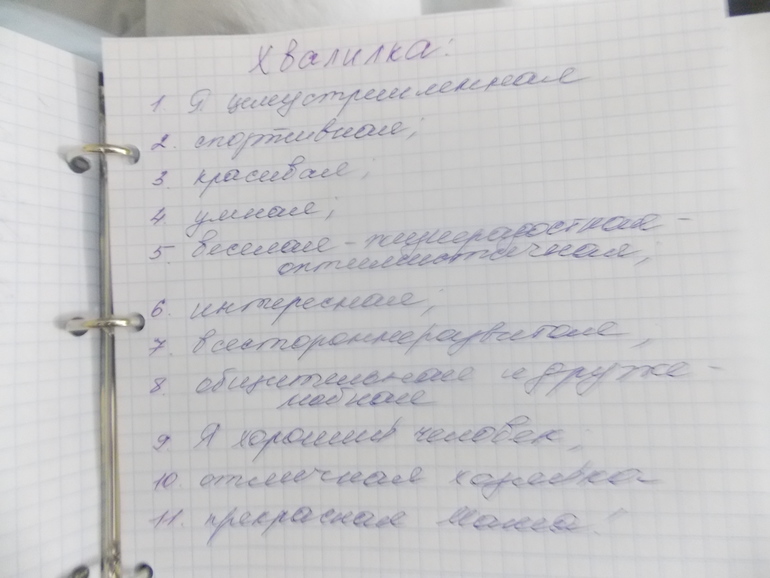 Хвалилка:
1. Я целеустремленная
2. спортивная;
3. красивая;
4. умная;
5. веселая - жизнерадостная -
оптимистичная;
6. интересная;
7. всестороннеразвитая,
8. общительная и друже-
любная
9 Я хороший человек;
10. отличная хозяйка
11. прекрасная мама!